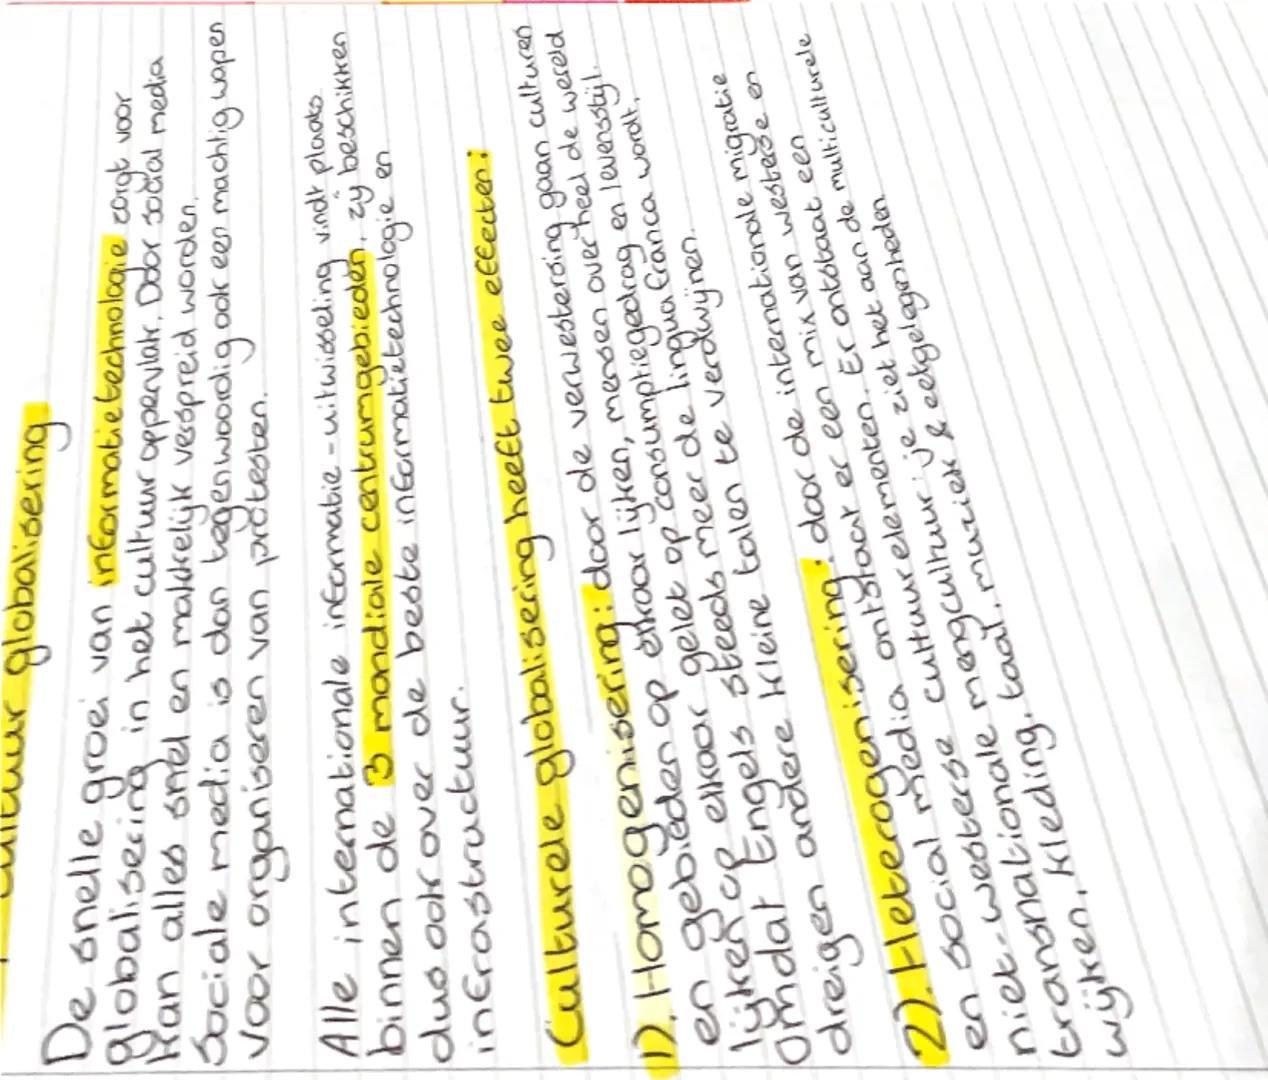 cultuur globalisering
De snelle groei van informatietechnologie zorgt voor
globalisering in het cultuur oppervlak. Door social media
kan alles snel en makkelijk verspreid worden.
Sociale media is dan tegenwoordig ook een machtig wapen
voor organiseren van protesten.
Alle internationale informatie-uitwisseling vindt plaats
binnen de 3 mondiale centrumgebieden, zij beschikken
dus ook over de beste informatietechnologie en
infrastructuur.
Culturele globalisering heeft twee effecten:
1). Homogenisering: door de verwestersing gaan culturen
en gebieden op elkaar lijken, mensen over heel de wereld
lijken op elkaar gelet op consumptiegedrag en levensstijl.
Omdat Engels steeds meer de lingua franca wordt,
dreigen andere kleine talen te verdwijnen.
2). Heterogenisering: door de internationale migratie
en social media ontstaat er een mix van westerse en
niet-westerse cultuurelementen. Er ontstaat een
transnationale mengcultuur: je ziet het aan de multiculturele
wijken, kleding, taal, muziek & eetgelegenheden.